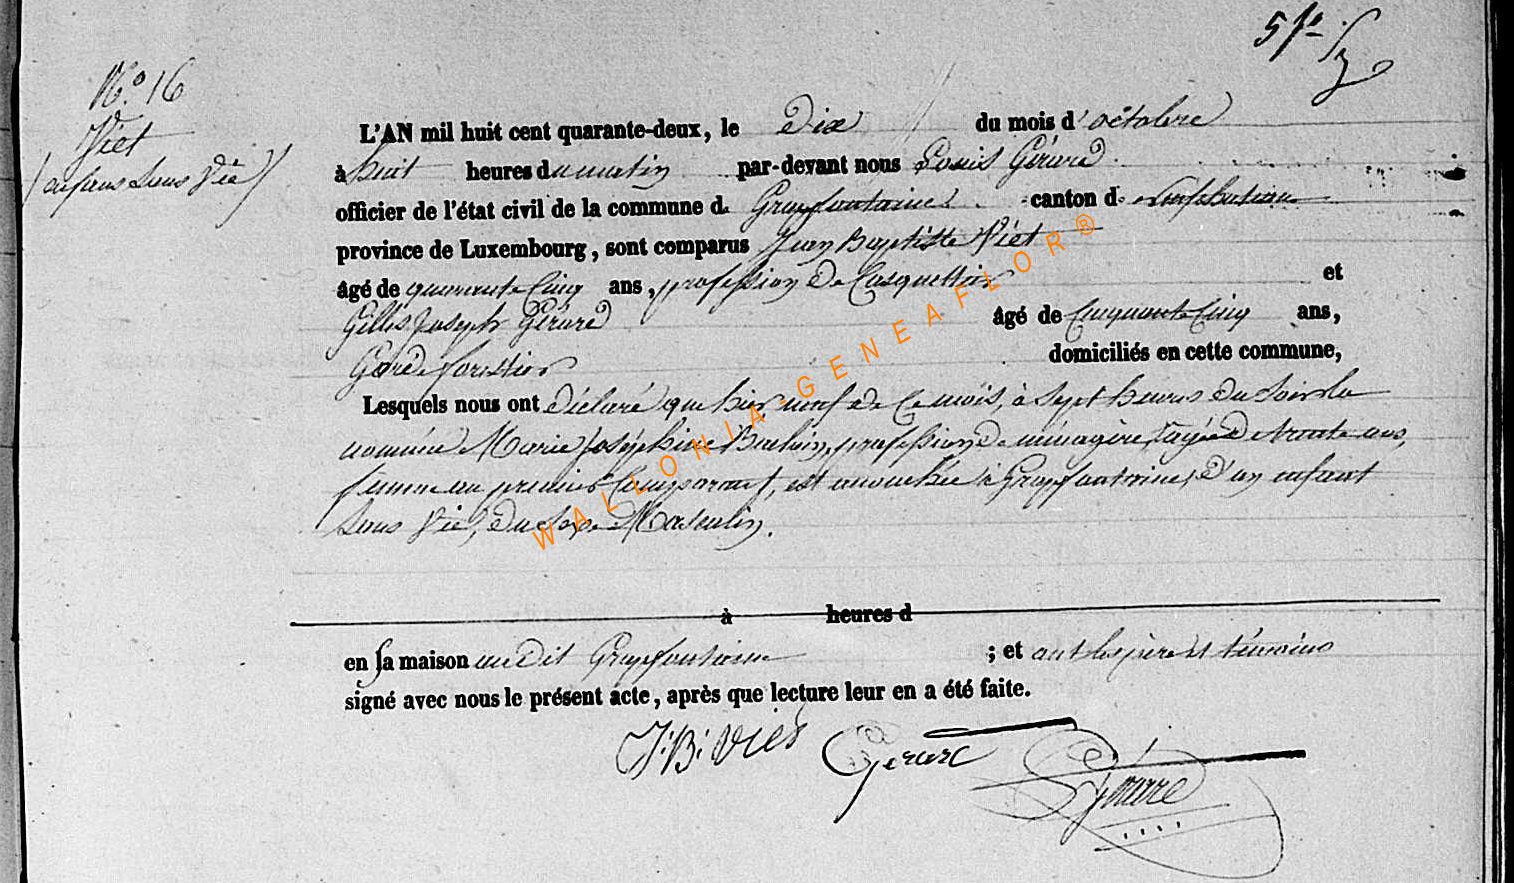 5 fo
No. 16
Viet
(enfans sans Vie)
L'AN mil huit cent quarante-deux, le Dix du mois d'octobre
à huit heures du matin par-devant nous Louis Gérard
officier de l'état civil de la commune de Grapfontaine canton de Neufchateau
province de Luxembourg, sont comparus Jean Baptiste Viet
âgé de quarante Cinq ans, profession de Casquettier et
Gilles Joseph Gérard âgé de Cinquante Cinq ans,
Garde forestier domiciliés en cette commune,
Lesquels nous ont déclaré que hier neuf de Ce mois, à Sept heures du Soir la
nommée Marie Joséphine profession de ménagère, agée de trente ans,
femme au premier Comparant, est accouchée à Grapfontaine, d'un enfant
Sans Vie, du Sexe Masculin.
à heures d
en sa maison audit Grapfontaine ; et ont les père et témoins
signé avec nous le présent acte, après que lecture leur en a été faite.
J: B: Viet Gerard LGérard
WALLONIA-GENEAFLOR®